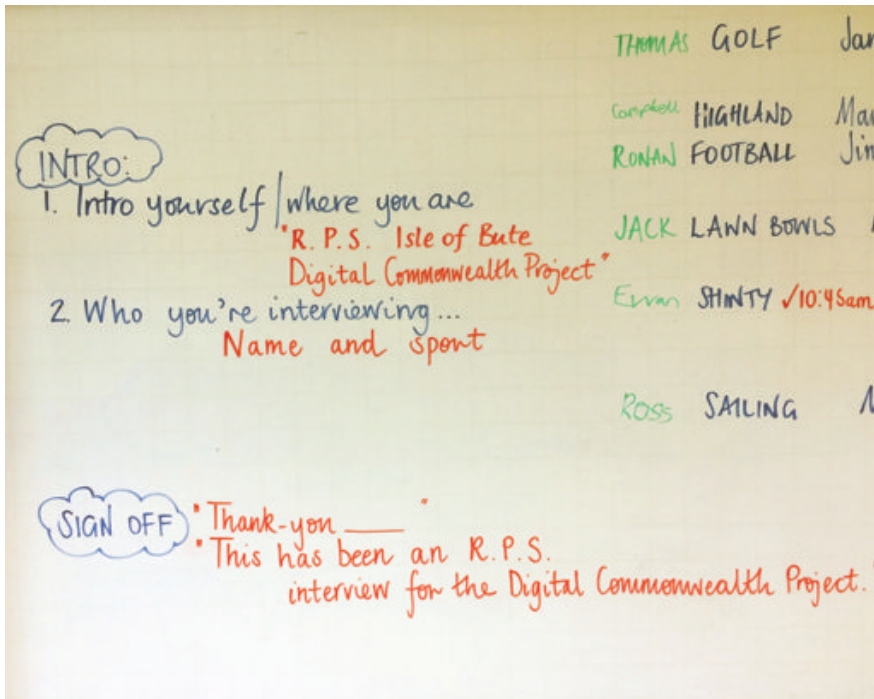 INTRO:
1. Intro yourself / where you are
"R. P. S. Isle of Bute
Digital Commonwealth Project"
2. Who you're interviewing...
Name and sport
SIGN OFF
"Thank-you ____ "
"This has been an R.P.S.
interview for the Digital Commonwealth Project."
THOMAS GOLF
Campbell HIGHLAND
RONAN FOOTBALL
JACK LAWN BOWLS
SHINTY ✓10:45am
ROSS SAILING